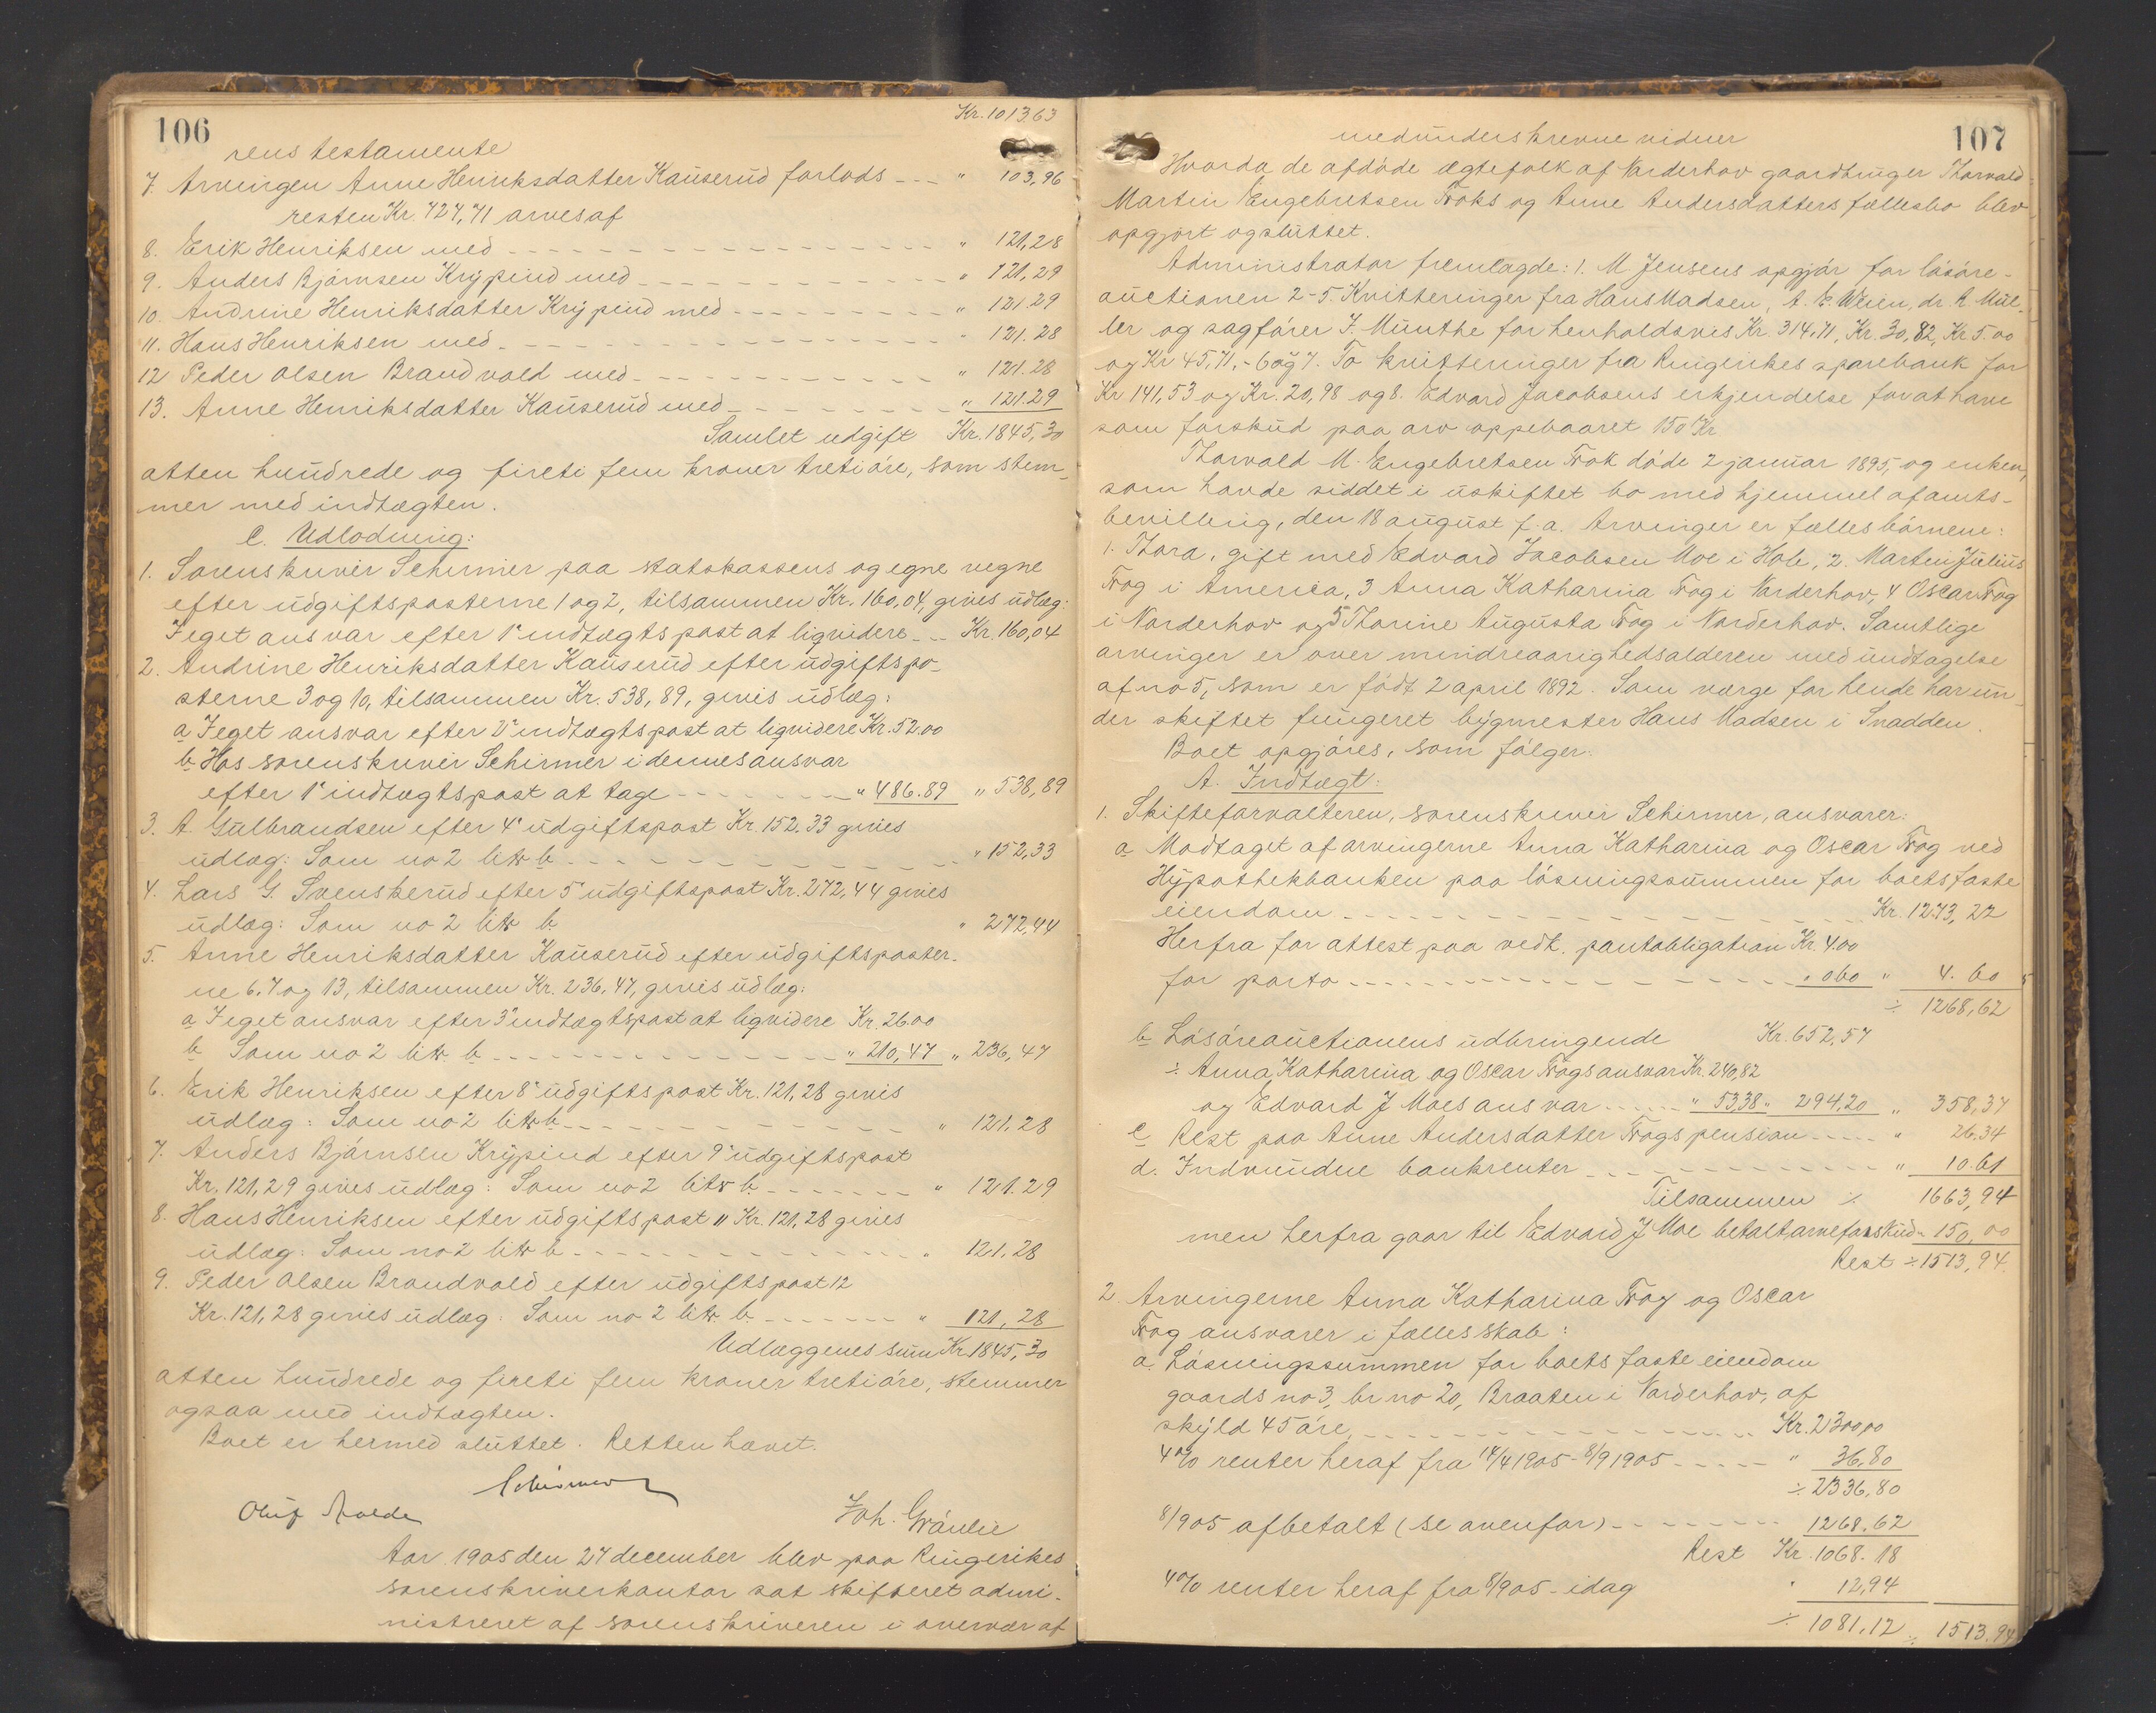 106
Kr. 1013,63
rens testamente
7. Arvingen Anne Henriksdatter Kauserud forlods - - - " 103,96
resten Kr. 727,71 arves af
8. Erik Henriksen med - - - " 121,28
9. Anders Bjørnsen Krypind med - - - " 121,29
10. Andrine Henriksdatter Krypind med - - - " 121.29
11. Hans Henriksen med - - - " 121.28
12 Peder Olsen Brandvold med - - - " 121.28
13. Anne Henriksdatter Kauserud med - - - " 121.29
Samlet udgift Kr. 1845,30
atten hundrede og fireti fem kroner treti øre, som stem-
mer med indtægten.
C. Udlodning:
1. Sorenskriver Schirmer paa statskassens og egne vegne
efter udgiftsposterne 1 og 2, tilsammen Kr. 160,04, gives udlæg:
I eget ansvar efter 1ste indtægtspost at liqvidere - - Kr. 160,04
2. Andrine Henriksdatter Kauserud efter udgiftspo-
sterne 3 og 10, tilsammen Kr. 538,89, gives udlæg:
a I eget ansvar efter 2' indtægtspost at liqvidere Kr. 52.00
b Hos sorenskriver Schirmer i dennes ansvar
efter 1' indtægtspost at tage - - - " 486.89 " 538,89
3. A. Gulbrandsen efter 4' udgiftspost Kr. 152.33 gives
udlæg: Som no 2 litr b - - - " 152,33
4. Lars G. Svenskerud efter 5' udgiftspost Kr. 272,44 gives
udlæg: Som no 2 litr b " 272,44
5. Anne Henriksdatter Kauserud efter udgiftsposter-
ne 6, 7 og 13, tilsammen Kr. 236,47, gives udlæg:
a I eget ansvar efter 3' indtægtspost at liqvidere Kr. 26.00
b Som no 2 litr b - - - " 210,47 " 236,47
6. Erik Henriksen efter 8' udgiftspost Kr. 121,28 gives
udlæg: Som no 2 litr b - - - " 121.28
7. Anders Bjørnsen Krypind efter 9' udgiftspost
Kr. 121,29 gives udlæg: Som no 2 litr b - - - " 121.29
8. Hans Henriksen efter udgiftspost 11 Kr. 121,28 gives
udlæg: Som no 2 litr b - - - " 121.28
9. Peder Olsen Brandvold efter udgiftspost 12
Kr. 121,28 gives udlæg: Som no 2 litr b - - - " 121,28
Udlæggenes sum Kr 1845,30
atten hundrede og fireti fem kroner treti øre, stemmer
ogsaa med indtægten.
Boet er hermed sluttet. Retten hævet.
Schirmer
Oluf Joh. Gräulie
Aar 1905 den 27 december blev paa Ringerikes
sorenskriverkontor sat skifteret admi-
nistreret af sorenskriveren i overvær af
107
medunderskrevne vidner
Hvorda de afdøde ægtefolk af Norderhov gaardbruger Thorvald
Martin Engebretsen Trøks og Anne Andersdatters fællesbo blev
opgjort og sluttet.
Administrator fremlagde: 1. M. Jensens opgjør for løsøre-
auctionen 2-5. Kvitteringer fra Hans Madsen, A. K. Weien, dr. R Mül-
ler og sagfører J. Munthe for henholdsvis Kr. 314,71, Kr. 30,82, Kr 5.00
og Kr 45,71, - 6 og 7. To kvitteringer fra Ringerikes sparebank for
Kr 141,53 og Kr. 20,98 og 8. Edvard Jacobsens erkjendelse for at have
som forskud paa arv oppebaaret 150 Kr
Thorvald M. Engebretsen Trok døde 2 januar 1895, og enken,
som havde siddet i uskiftet bo med hjemmel af amts-
bevilling, den 18 august f. a. Arvinger er fællesbørnene:
1. Thora, gift med Edvard Jacobsen Moe i Hole, 2. Martin Julius
Trog i America, 3 Anna Katharina Trog i Norderhov, 4 Oscar Trog
i Norderhov og 5 Thorine Augusta Trog i Norderhov. Samtlige
arvinger er over mindreaarighedsalderen med undtagelse
af no 5, som er født 2 april 1892. Som verge for hende har un-
der skiftet fungeret bygmester Hans Madsen i Snadden.
Boet opgjøres, som følger:
A. Indtægt:
1. Skifteforvalteren, sorenskriver Schirmer, ansvarer:
a Modtaget af arvingerne Anna Katharina og Oscar Trog ved
Hypothekbanken paa løsningssummen for boets faste
eiendom - - - Kr. 1273,22
Herfra for attest paa vedk. pantobligation Kr. 4.00
for porto - - - " 0 60 " 4. 60
÷ 1268,62
b Løsøreauctionens udbringende Kr. 652,57
÷ Anna Katharina og Oscar Trogs ansvar Kr. 240,82
og Edvard J Moes ansvar - - - " 53,38 " 294,20 " 358,37
c Rest paa Anne Andersdatter Trogs pension - - - " 26.34
d. Indvundne bankrenter - - - " 10.61
Tilsammen ÷ 1663,94
men herfra gaar til Edvard J Moe betalt arveforskud " 150,00
Rest ÷ 1513,94.
2. Arvingerne Anna Katharina Trog og Oscar
Trog ansvarer i fællesskab:
a. Løsningssummen for boets faste eiendom
gaards no 3, br no 20, Braaten i Norderhov, af
skyld 45 øre, - - - Kr. 2300,00
4 % renter heraf fra 14/4 1905 - 8/9 1905 - - - " 36,80
÷ 2336,80
8/9 05 afbetalt (se ovenfor) - - - 1268.62
Rest Kr. 1068.18
4 % renter heraf fra 8/9 05 - idag " 12,94
÷ 1081,12 ÷ 1513.94